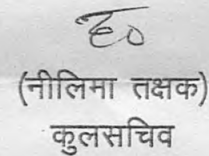 ह०
(नीलिमा तक्षक)
कुलसचिव